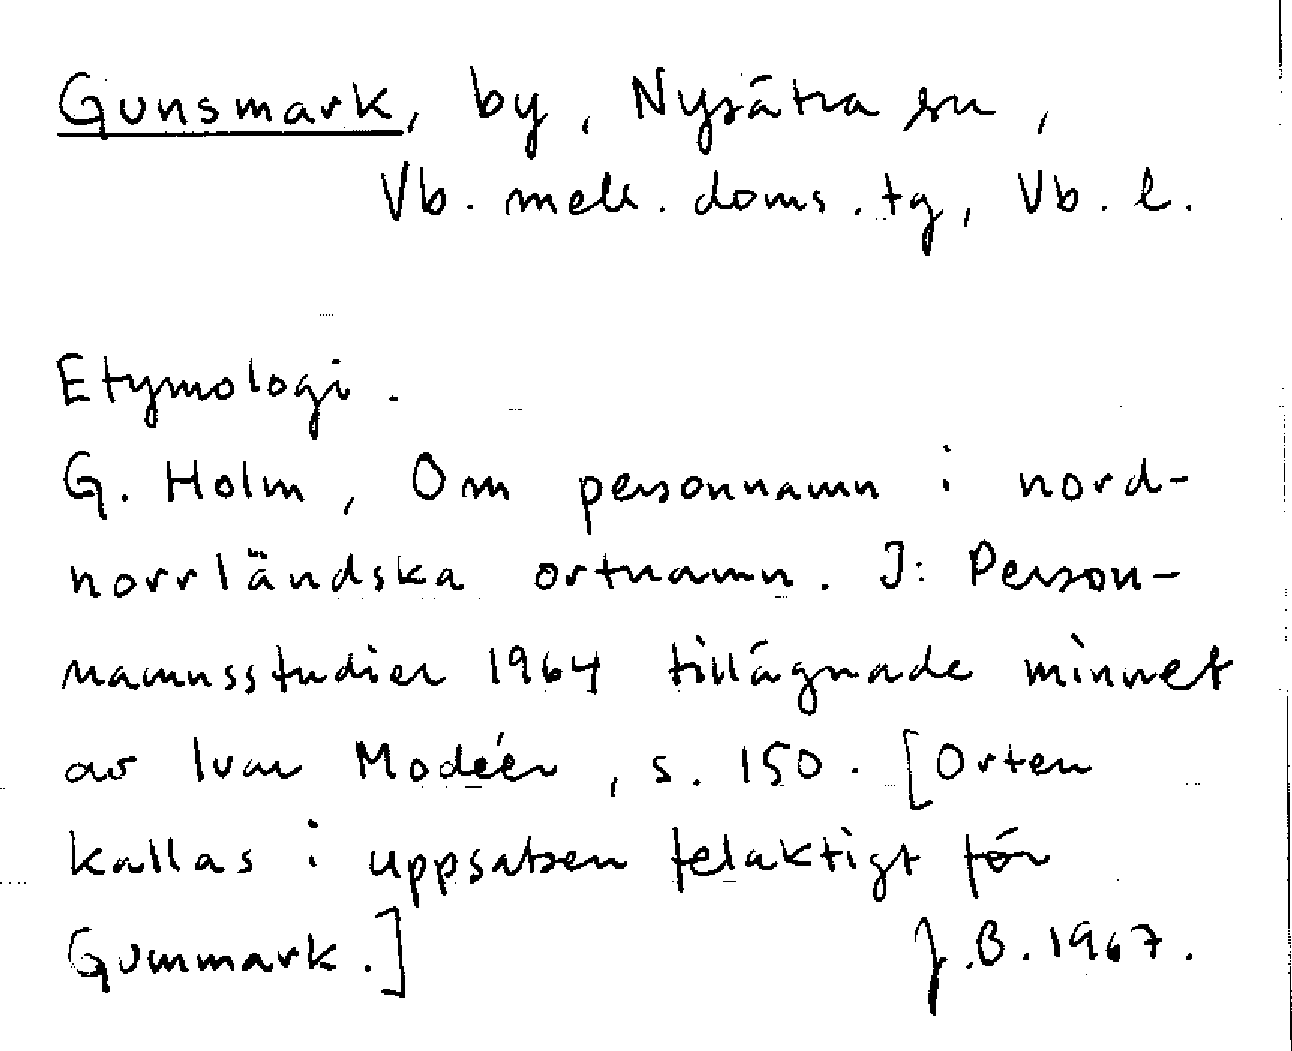 Gunsmark, by, Nysätra sn,
Vb. mell. doms. tg, Vb. l.
Etymologi.
G. Holm, Om personnamn i nord-
norrländska ortnamn. I: Person-
namnsstudier 1964 tillägnade minnet
av Ivar Modéer, s. 150. [Orten
kallas i uppsatsen felaktigt för
Gummark.] J.B. 1967.